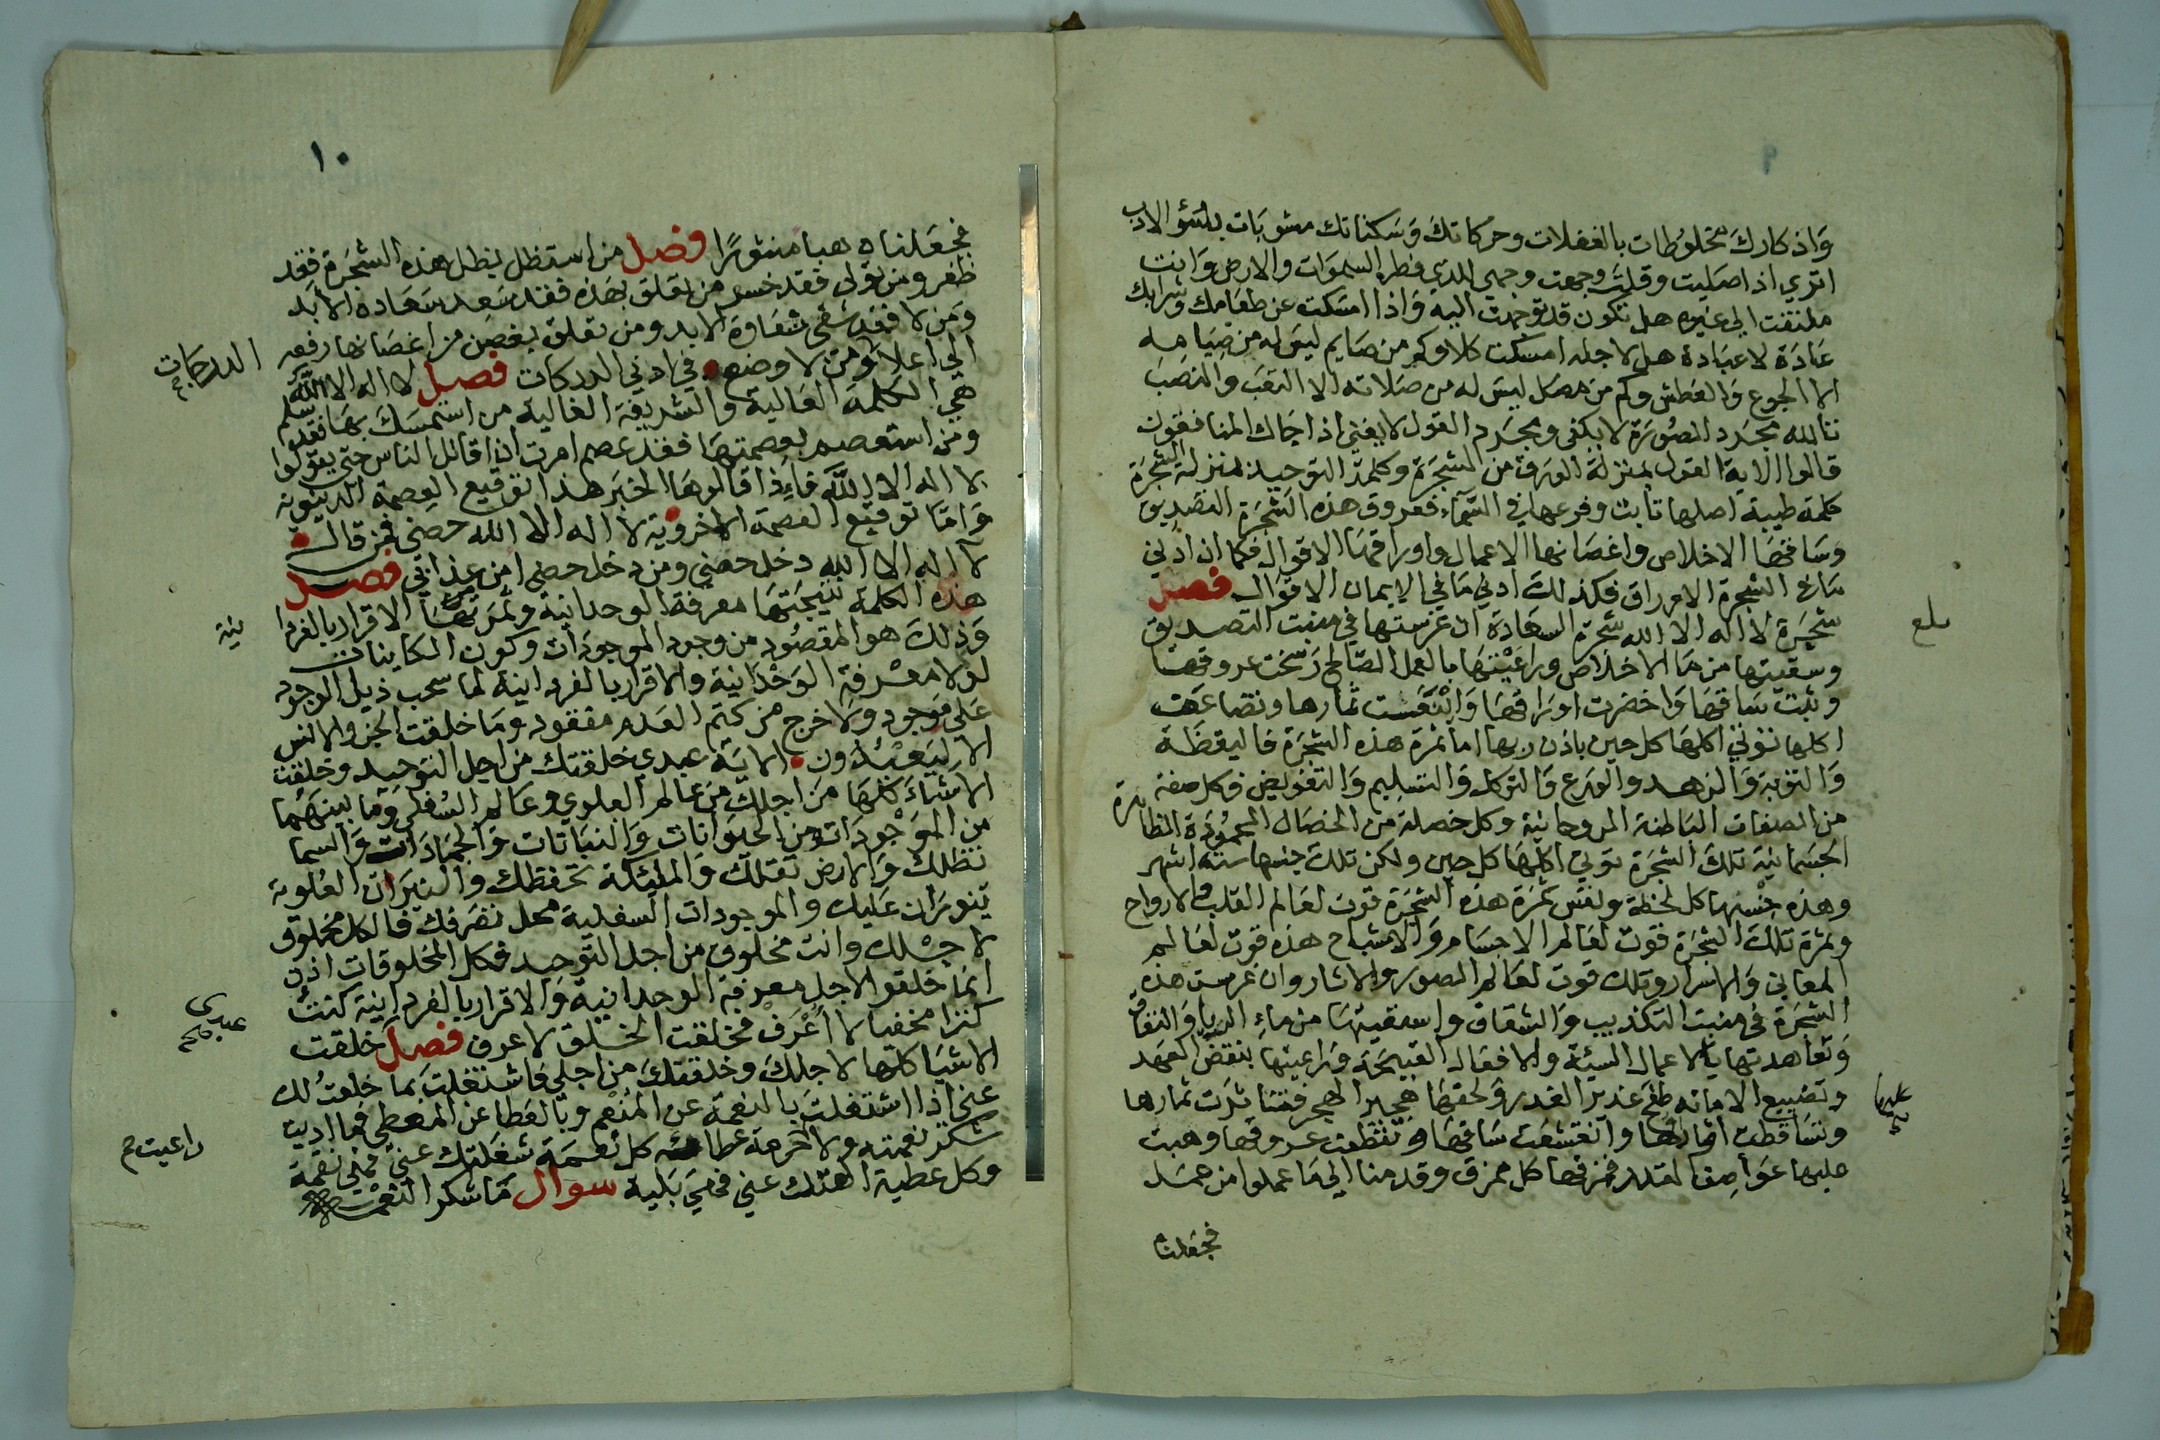 ٩
وَاذكارك مخلوُطات بالغفلات وحركاتك وَسَكناتك مشوبَات بسُؤ الادب
اتري اذا صَليت وقلت وجهت وجهي للذي فطر السموَات والارض وَانت
ملتفت الي غيره هل تكون قد توجهت اليه وَاذا امسَكت عن طعَامك وشرابك
عَادَة لا عبَادة هل لاجله امسَكت كلا وكم من صَايم ليسَ له من صِيامه
الا الجوع وَالعَطش وكم من مصَل ليسَ له من صَلاته الا التعَب وَالنصَب
تالله مجَرد الصُورَة لا يكفى ومجَرد القول لا يغني اذا جَاك المنافقون
قالوا الاية القول بمنزلة الورق من الشجَرَة وكلمة التوحيد بمنزلة الشجَرَة
كلمة طيبة اصلها ثابت وفرعها في السَّمَآء فعروق هذه الشَجَرَة التصَديق
وسَاقهَا الاخلاص واغصَانها الاعمال واوراقهَا الاقوال فكما ان ادني
مَا في الشجرة الاوراق فكذلك ادني مَا في الايمان الاقوال فصل
شجَرة لا اله الا الله شجرة السعَادَة ان غرَستها في منبت التصَديق
وسقيتها من مَا الاخلاص وراعَيْتهَا بالعمل الصَّالح رَسَخت عروقهَا
وثبت سَاقهَا وَاخضَرت اورَاقهَا وَايْنَعَت ثمارها وتضاعَفت
اكلها تؤتي اكلهَا كل حين باذن ربها اما ثمرة هذه الشجَرَة فاليقظَة
وَالتوبة وَالزهد والورَع وَالتوكل وَالتسَليم وَالتفويض فكل صفة
من الصفات البَاطنة الروحَانية وكل خصلة من الخصَال المحموُدَة الظاهرَة
الجسَمانية تلكَ الشَجَرَة توتي اكلهَا كل حين ولكن تلك حينها ستة اشهر
وهذه حِيْنها كل لحظة ونفَس ثمَرَة هذه الشجَرَة قوت لعَالم القلب والارواح
وثمرة تلكَ الشجَرَة قوت لعَالم الاجسَام وَالاشبَاح هذه قوت لعَالم
المعَاني وَالاسرار وتلك قوت لعَالم الصور والاثار وان غرست هذه
الشجَرَة في منبت التكذيب وَالشقاق واسقيتهَا من مآءِ الريا وَالنفاق
وَتعَاهدتها بالاعمال السَيئة والافعَال القبيحَة وَراعيتها بنقض العهد
وتضييع الامَانه طفحَ غدير الغدر وَلحقهَا هجير الهجر فتنَاثرَت ثمارها
وتسَاقطت اوراقهَا وانقشعَت سَاقهَا وتقطعت عروقها وهبت
عليها عَوَاصِف القدر فمزقها كل ممزق وقدمنا الي مَا عملوا من عمَل
بلغ
عليها
فجعَلناه
١٠
فجعَلناه هبا منثورًا فصل من استظل بظل هذه الشجَرَة فقد
ظفر ومن تولى فقد خسر من تعَلق بهَذه فقد سَعد سَعَادة الابَد
وَمَن لا فقد شقى شقاوَة الابد ومن تعَلق بغصن من اغصَانها رفعه
الي اعلا ومن لا وضعه في ادني الدركات فصل لا اله الا الله
الدرجات
هي الكلمة العَالية وَالشريفة الغالية من استَمسَكَ بهَا فقد سلم
ومن استعصم بعصمتهَا فقد عصم امرت ان اقاتل الناس حتي يقولوا
لا اله الا الله فاءِذا قالوهَا الخبَر هذا توقيع العصمة الدنيوية
وَامّا توقيع العصمة الاخروية لا اله الا الله حصَني فمن قال
لا اله الا الله دخل حصَني ومن دخل حصَني امن عذابي فصل
هذه الكلمة نتيجَتهَا معرفة الوحدانية وثمرتهَا الاقرار بالفردا
نية
وَذلك هو المقصُود من وجود الموجودَات وكون الكاينات
لولا معْرفة الوَحْدَانية والاقرار بالفردانية لما سحب ذيل الوجود
عَلى موجود ولا خرج من كتم العَدم مفقود ومَا خلقت الجن والانس
الا ليَعْبُدُون الايَة عبدي خلقتك من اجل التوحيد وخلقت
الاشيَاءَ كلهَا من اجلك من عَالم العلوي وعَالم السُفلي ومَا بينهمَا
من الموْجودَات من الحَيوَانات وَالنبَاتات وَالجمَادَات وَالسما
تظلك وَالارض تقلك وَالمليكة تحفظك والنيرَان العُلوية
ينورَان عَليك والموجودات السفلية محل تصَرفك فالكل مخلوق
لاجْلك وانت مخلوق من اجل التوحيد فكل المخلوقات اذن
انما خلقوا لاجل معرفة الوحدانية وَالاقرار بالفردانية كنت
كنزا مخفيا لا اُعْرَفْ فخلقت الخلق لاعرف فصل خلقت
عبدي
الاشيَا كلهَا لاجلكَ وخلقتكَ من اجلي فاشتغلت بما خلقتُ لك
عني اذا اشتغلتَ بالنعمة عن المُنْعم وبالعَطا عن المعطي فما اديت
شكر نعمته ولا حرمة عطائه كل نعمَة شغلتك عني فهي نقمَة
راعيت
وكل عطية الهتك عني فهيَ بَلية سوال مَا شكر النعمة